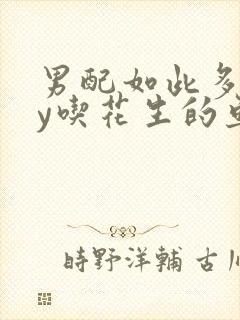 男配如此多
y喫花生的
時野洋輔 古川